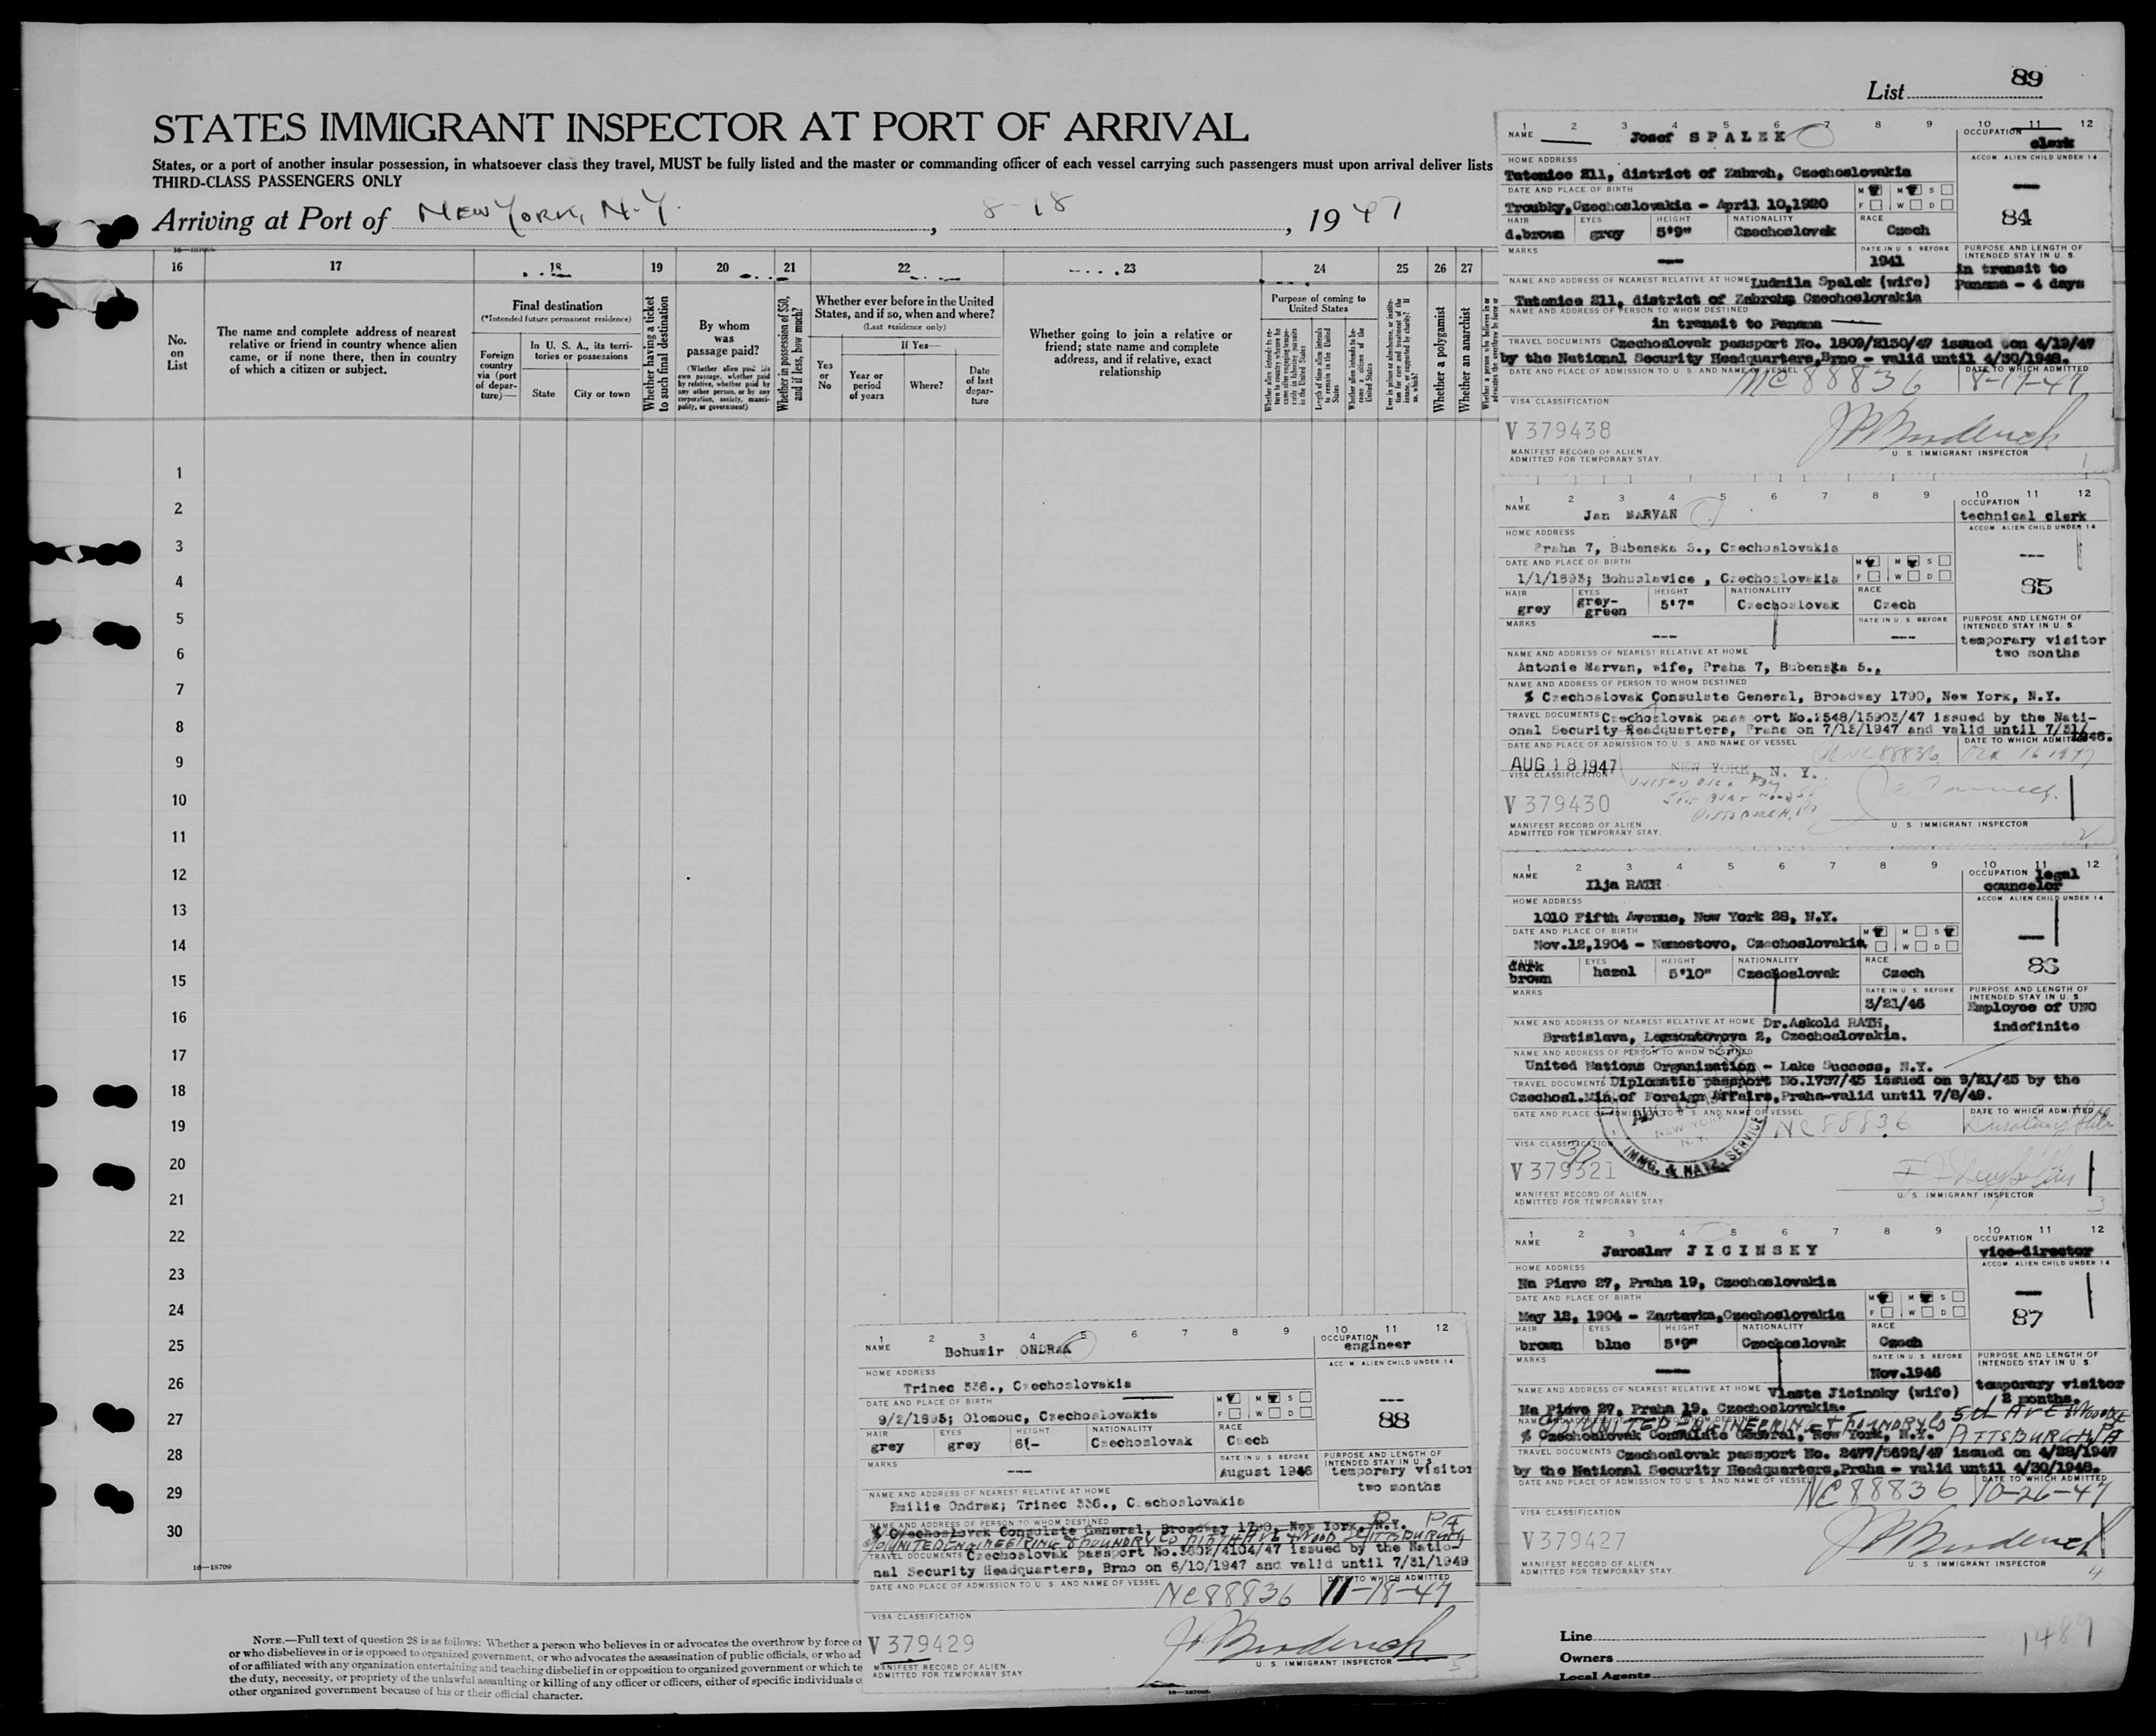 List 89
STATES IMMIGRANT INSPECTOR AT PORT OF ARRIVAL
States, or a port of another insular possession, in whatsoever class they travel, MUST be fully listed and the master or commanding officer of each vessel carrying such passengers must upon arrival deliver lists
THIRD-CLASS PASSENGERS ONLY
Arriving at Port of NEW YORK, N.Y. , 8-18 , 1947
16 17 18 19 20 21 22 23 24 25 26 27
No. on List
The name and complete address of nearest relative or friend in country whence alien came, or if none there, then in country of which a citizen or subject.
Final destination
(*Intended future permanent residence)
Foreign country via (port of departure)—
In U. S. A., its territories or possessions
State
City or town
Whether having a ticket to such final destination
By whom was passage paid?
(Whether alien paid his own passage, whether paid by relative, whether paid by any other person, or by any corporation, society, municipality, or government)
Whether in possession of $50, and if less, how much?
Whether ever before in the United States, and if so, when and where?
(Last residence only)
Yes or No
If Yes—
Year or period of years
Where?
Date of last departure
Whether going to join a relative or friend; state name and complete address, and if relative, exact relationship
Purpose of coming to United States
Length of time alien intends to remain in the United States
Whether alien intends to become a citizen of the United States
Whether a polygamist
Whether an anarchist
1
2
3
4
5
6
7
8
9
10
11
12
13
14
15
16
17
18
19
20
21
22
23
24
25
26
27
28
29
30
16—18700
NOTE.—Full text of question 28 is as follows: Whether a person who believes in or advocates the overthrow by force or
or who disbelieves in or is opposed to organized government, or who advocates the assassination of public officials, or who ad
of or affiliated with any organization entertaining and teaching disbelief in or opposition to organized government or which te
the duty, necessity, or propriety of the unlawful assaulting or killing of any officer or officers, either of specific individuals o
other organized government because of his or their official character.
1 2 3 4 5 6 7 8 9 10 11 12
NAME Josef SPALEK
OCCUPATION clerk
HOME ADDRESS
Tatenice 211, district of Zabreh, Czechoslovakia
ACCOM. ALIEN CHILD UNDER 14
---
DATE AND PLACE OF BIRTH
Troubky, Czechoslovakia - April 10, 1920
M M S
F W D
84
HAIR d.brown
EYES grey
HEIGHT 5'9"
NATIONALITY Czechoslovak
RACE Czech
MARKS ---
DATE IN U. S. BEFORE 1941
PURPOSE AND LENGTH OF INTENDED STAY IN U. S.
in transit to Panama - 4 days
NAME AND ADDRESS OF NEAREST RELATIVE AT HOME Ludmila Spalek (wife)
Tatenice 211, district of Zabreh, Czechoslovakia
NAME AND ADDRESS OF PERSON TO WHOM DESTINED
in transit to Panama
TRAVEL DOCUMENTS Czechoslovak passport No. 1809/2130/47 issued on 4/19/47
by the National Security Headquarters, Brno - valid until 4/30/1948.
DATE AND PLACE OF ADMISSION TO U. S. AND NAME OF VESSEL NC 88836
DATE TO WHICH ADMITTED 8-19-47
VISA CLASSIFICATION
V 379438
MANIFEST RECORD OF ALIEN
ADMITTED FOR TEMPORARY STAY.
U. S. IMMIGRANT INSPECTOR
1
1 2 3 4 5 6 7 8 9 10 11 12
NAME Jan MARVAN
OCCUPATION technical clerk
HOME ADDRESS
Praha 7, Bubenska 5., Czechoslovakia
ACCOM. ALIEN CHILD UNDER 14
---
DATE AND PLACE OF BIRTH
1/1/1893; Bohuslavice , Czechoslovakia
M M S
F W D
85
HAIR grey
EYES grey-green
HEIGHT 5'7"
NATIONALITY Czechoslovak
RACE Czech
MARKS ---
DATE IN U. S. BEFORE ---
PURPOSE AND LENGTH OF INTENDED STAY IN U. S.
temporary visitor
two months
NAME AND ADDRESS OF NEAREST RELATIVE AT HOME
Antonie Marvan, wife, Praha 7, Bubenska 5.,
NAME AND ADDRESS OF PERSON TO WHOM DESTINED
% Czechoslovak Consulate General, Broadway 1790, New York, N.Y.
TRAVEL DOCUMENTS Czechoslovak passport No.2548/15903/47 issued by the Nati-
onal Security Headquarters, Prana on 7/15/1947 and valid until 7/31/1948.
DATE AND PLACE OF ADMISSION TO U. S. AND NAME OF VESSEL NC 88836
DATE TO WHICH ADMITTED Oct 16 1947
AUG 18 1947 NEW YORK, N. Y.
VISA CLASSIFICATION
V 379430
PITTSBURGH, PA
MANIFEST RECORD OF ALIEN
ADMITTED FOR TEMPORARY STAY.
U. S. IMMIGRANT INSPECTOR
2
1 2 3 4 5 6 7 8 9 10 11 12
NAME Ilja RATH
OCCUPATION legal councelor
HOME ADDRESS
1010 Fifth Avenue, New York 28, N.Y.
ACCOM. ALIEN CHILD UNDER 14
---
DATE AND PLACE OF BIRTH
Nov.12,1904 - Namestovo, Czechoslovakia
M M S
W D
86
HAIR dark brown
EYES hazel
HEIGHT 5'10"
NATIONALITY Czechoslovak
RACE Czech
MARKS
DATE IN U. S. BEFORE 3/21/46
PURPOSE AND LENGTH OF INTENDED STAY IN U. S.
Employee of UNO
indefinite
NAME AND ADDRESS OF NEAREST RELATIVE AT HOME Dr.Askold RATH,
Bratislava, Lermontovova 2, Czechoslovakia.
NAME AND ADDRESS OF PERSON TO WHOM DESTINED
United Nations Organization - Lake Success, N.Y.
TRAVEL DOCUMENTS Diplomatic passport No.1737/45 issued on 9/21/45 by the
Czechosl.Min.of Foreign Affairs,Praha-valid until 7/8/49.
DATE AND PLACE OF ADMISSION TO U. S. AND NAME OF VESSEL NC 88836
DATE TO WHICH ADMITTED
NEW YORK N.Y.
IMMG. & NATZ. SERVICE
VISA CLASSIFICATION
V 379321
MANIFEST RECORD OF ALIEN
ADMITTED FOR TEMPORARY STAY
U. S. IMMIGRANT INSPECTOR
3
1 2 3 4 5 6 7 8 9 10 11 12
NAME Jaroslav JICINSKY
OCCUPATION vice-director
HOME ADDRESS
Na Piave 27, Praha 19, Czechoslovakia
ACCOM. ALIEN CHILD UNDER 14
---
DATE AND PLACE OF BIRTH
May 12, 1904 - Zastavka, Czechoslovakia
M M S
F W D
87
HAIR brown
EYES blue
HEIGHT 5'9"
NATIONALITY Czechoslovak
RACE Czech
MARKS ---
DATE IN U. S. BEFORE Nov.1946
PURPOSE AND LENGTH OF INTENDED STAY IN U. S.
temporary visitor
2 months.
NAME AND ADDRESS OF NEAREST RELATIVE AT HOME Vlasta Jicinsky (wife)
Na Piave 27, Praha 19, Czechoslovakia.
NAME AND ADDRESS OF PERSON TO WHOM DESTINED
% UNITED ENGINEERING & FOUNDRY CO 5th AVE & WOOD ST
% Czechoslovak Consulate General, New York, N.Y. PITTSBURGH PA
TRAVEL DOCUMENTS Czechoslovak passport No. 2477/5692/47 issued on 4/28/1947
by the National Security Headquarters, Praha - valid until 4/30/1948.
DATE AND PLACE OF ADMISSION TO U. S. AND NAME OF VESSEL NC 88836
DATE TO WHICH ADMITTED 10-26-47
VISA CLASSIFICATION
V 379427
MANIFEST RECORD OF ALIEN
ADMITTED FOR TEMPORARY STAY.
U. S. IMMIGRANT INSPECTOR
4
1 2 3 4 5 6 7 8 9 10 11 12
NAME Bohumir ONDRAK
OCCUPATION engineer
HOME ADDRESS
Trinec 336., Czechoslovakia
ACCOM. ALIEN CHILD UNDER 14
---
DATE AND PLACE OF BIRTH
9/2/1895; Olomouc, Czechoslovakia
M M S
F W D
88
HAIR grey
EYES grey
HEIGHT 6'-
NATIONALITY Czechoslovak
RACE Czech
MARKS ---
DATE IN U. S. BEFORE August 1946
PURPOSE AND LENGTH OF INTENDED STAY IN U. S.
temporary visitor
two months
NAME AND ADDRESS OF NEAREST RELATIVE AT HOME
Emilie Ondrak; Trinec 336., Czechoslovakia
NAME AND ADDRESS OF PERSON TO WHOM DESTINED
% Czechoslovak Consulate General, Broadway 1790, New York, N.Y.
% UNITED ENGINEERING & FOUNDRY CO FIFTH AVE & WOOD ST PITTSBURGH PA
TRAVEL DOCUMENTS Czechoslovak passport No.3602/4104/47 issued by the Natio-
nal Security Headquarters, Brno on 6/10/1947 and valid until 7/31/1949
DATE AND PLACE OF ADMISSION TO U. S. AND NAME OF VESSEL NC 88836
DATE TO WHICH ADMITTED 11-18-47
VISA CLASSIFICATION
V 379429
MANIFEST RECORD OF ALIEN
ADMITTED FOR TEMPORARY STAY
U. S. IMMIGRANT INSPECTOR
5
Line
Owners
Local Agents
1489